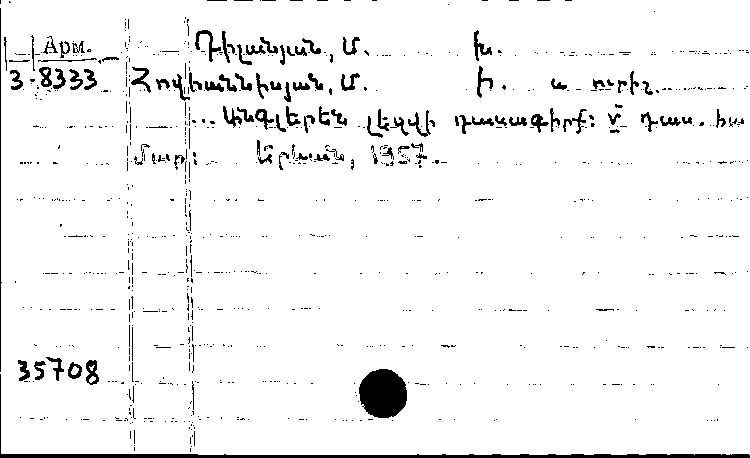 Арм. Դիլանյան, Մ. Խ.
3-8333 Հովհաննիսյան, Մ. Ի. և ուրիշ.
... Անգլերեն լեզվի դասագիրք: V դաս. հա
մար: Երևան, 1957.
35708